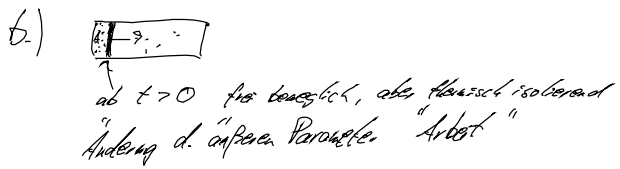 b.)
ab t > 0 frei beweglich, aber thermisch isolierend
"Änderung d. äußeren Parameter" "Arbeit"